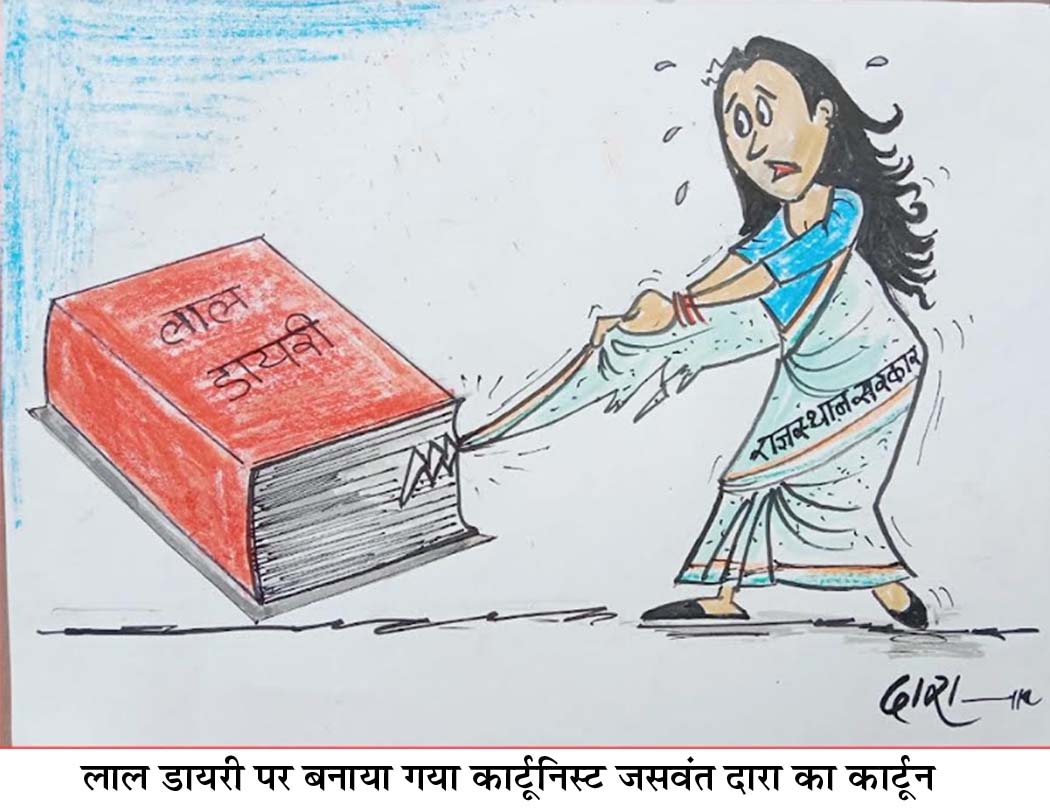 लाल
डायरी
राजस्थान सरकार
दारा
लाल डायरी पर बनाया गया कार्टूनिस्ट जसवंत दारा का कार्टून